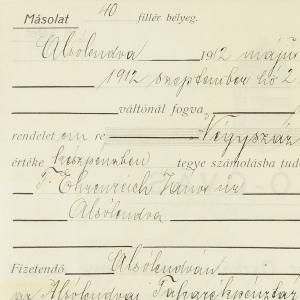 Másolat 40 fillér bélyeg.
Alsólendva 1912 május
1912 szeptember hó 2
váltónál fogva
rendelet em re Négyszáz
értéke készpénzben tegye számolásba tud
T. Ehrenreich János úr
Alsólendva
Fizetendő Alsólendván
az Alsólendvai Takarékpénztár